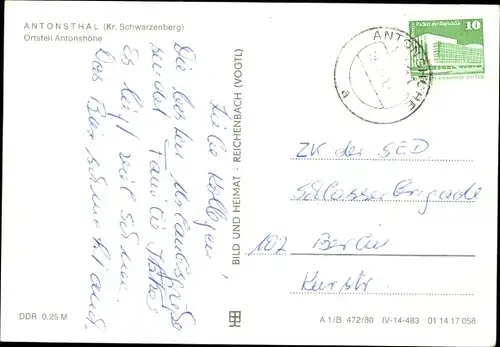 ANTONSTHAL (Kr. Schwarzenberg)
Ortsteil Antonshöhe
Liebe Kollegen!
Die besten Urlaubsgrüße
sendet Familie
Es liegt viel Schnee.
Das Bier schmeckt auch.
BILD UND HEIMAT · REICHENBACH (VOGTL)
DDR 0.25 M
ANTONSHÖHE
Palast der Republik
10
ZK der SED
Schlosser Brigade
102 Berlin
Kurstr.
A 1/B 472/80 IV-14-483 01 14 17 058